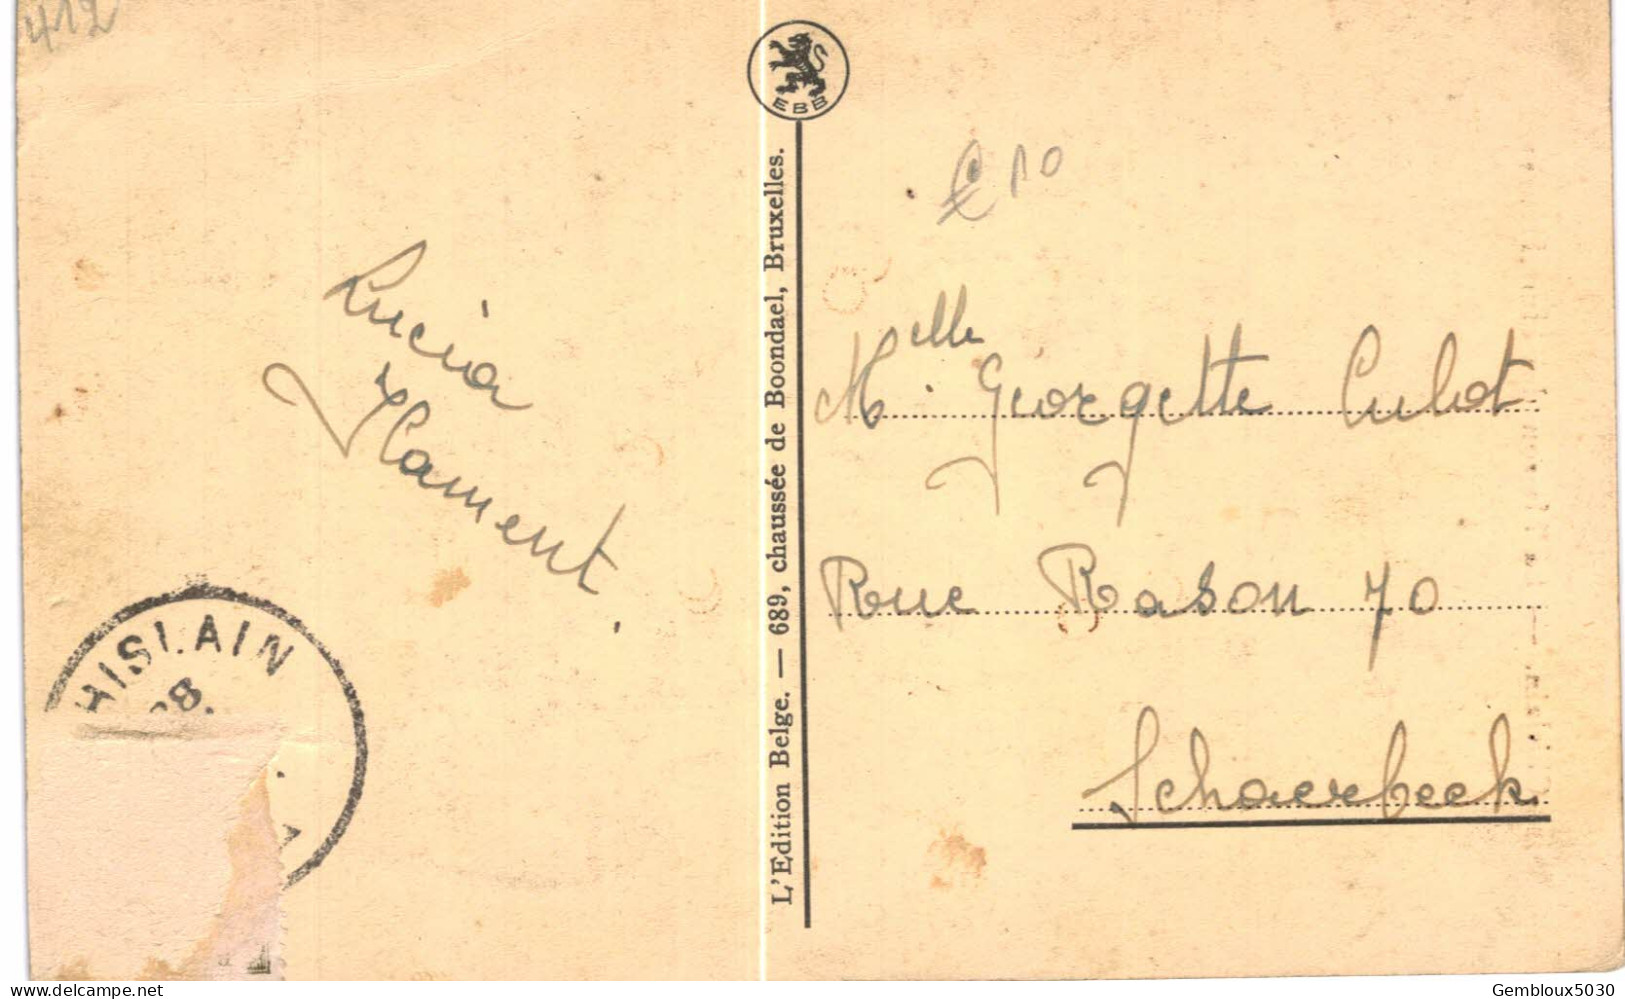 412
EBB
€ 10
Lucia
Hament.
Melle Georgette Culot
Rue Rason 70
Schaerbeek
HISLAIN
28.
L'Edition Belge. — 689, chaussée de Boondael, Bruxelles.
www.delcampe.net
Gembloux5030